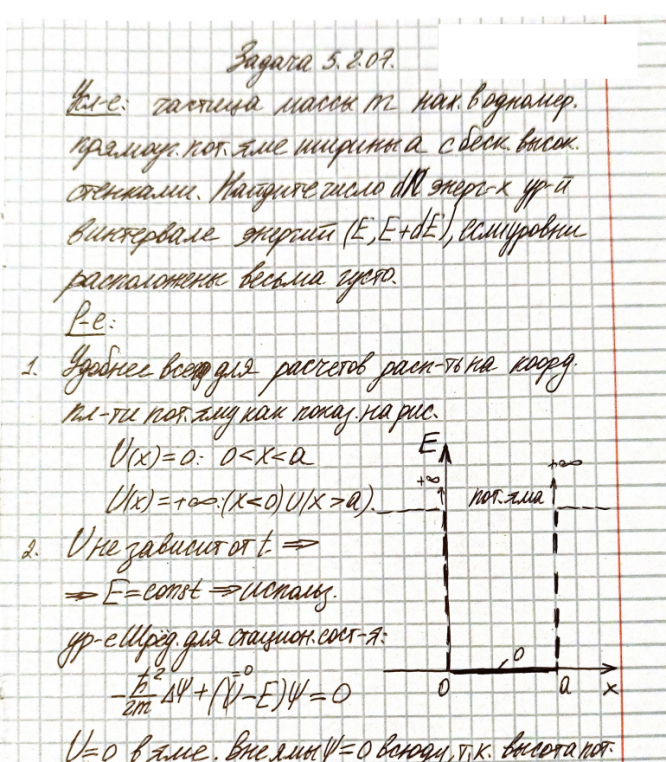 Задача 5.2.07.
Усл-е: частица массы m нах. в одномер.
прямоуг. пот. яме ширины a с беск. высок.
стенками. Найдите число dN энерг-х ур-й
в интервале энергий (E, E+dE), если уровни
расположены весьма густо.
Р-е:
1. Удобнее всего для расчетов расп-ть на коорд.
пл-ти пот. яму как показ. на рис.
U(x)=0: 0<x<a
U(x)=+∞: (x<0)U(x>a).
E
+∞
пот. яма
+∞
0
0
a
x
2. U не зависит от t ⇒
⇒ E=const ⇒ использ.
ур-е Шрёд. для стацион. сост-я:
-ħ²/2m ΔΨ + (U-E)Ψ = 0
=0
U=0 в яме. Вне ямы Ψ=0 всюду, т.к. высота пот.